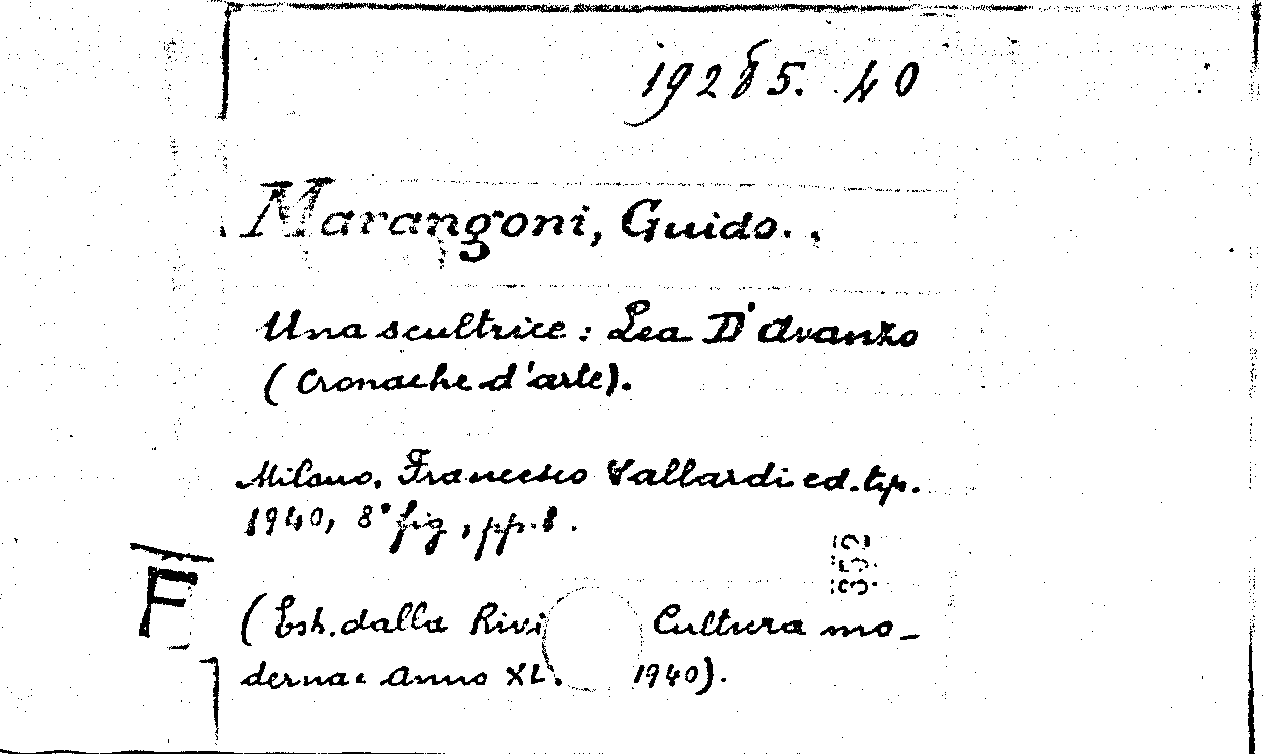 19285. 40
Marangoni, Guido.
Una scultrice: Lea D'Avanzo
(Cronache d'arte).
Milano, Francesco Vallardi ed. tip.
1940, 8° fig, pp. 8.
352
F
(Estr. dalla Rivi Cultura mo-
derna: Anno XL. 1940).